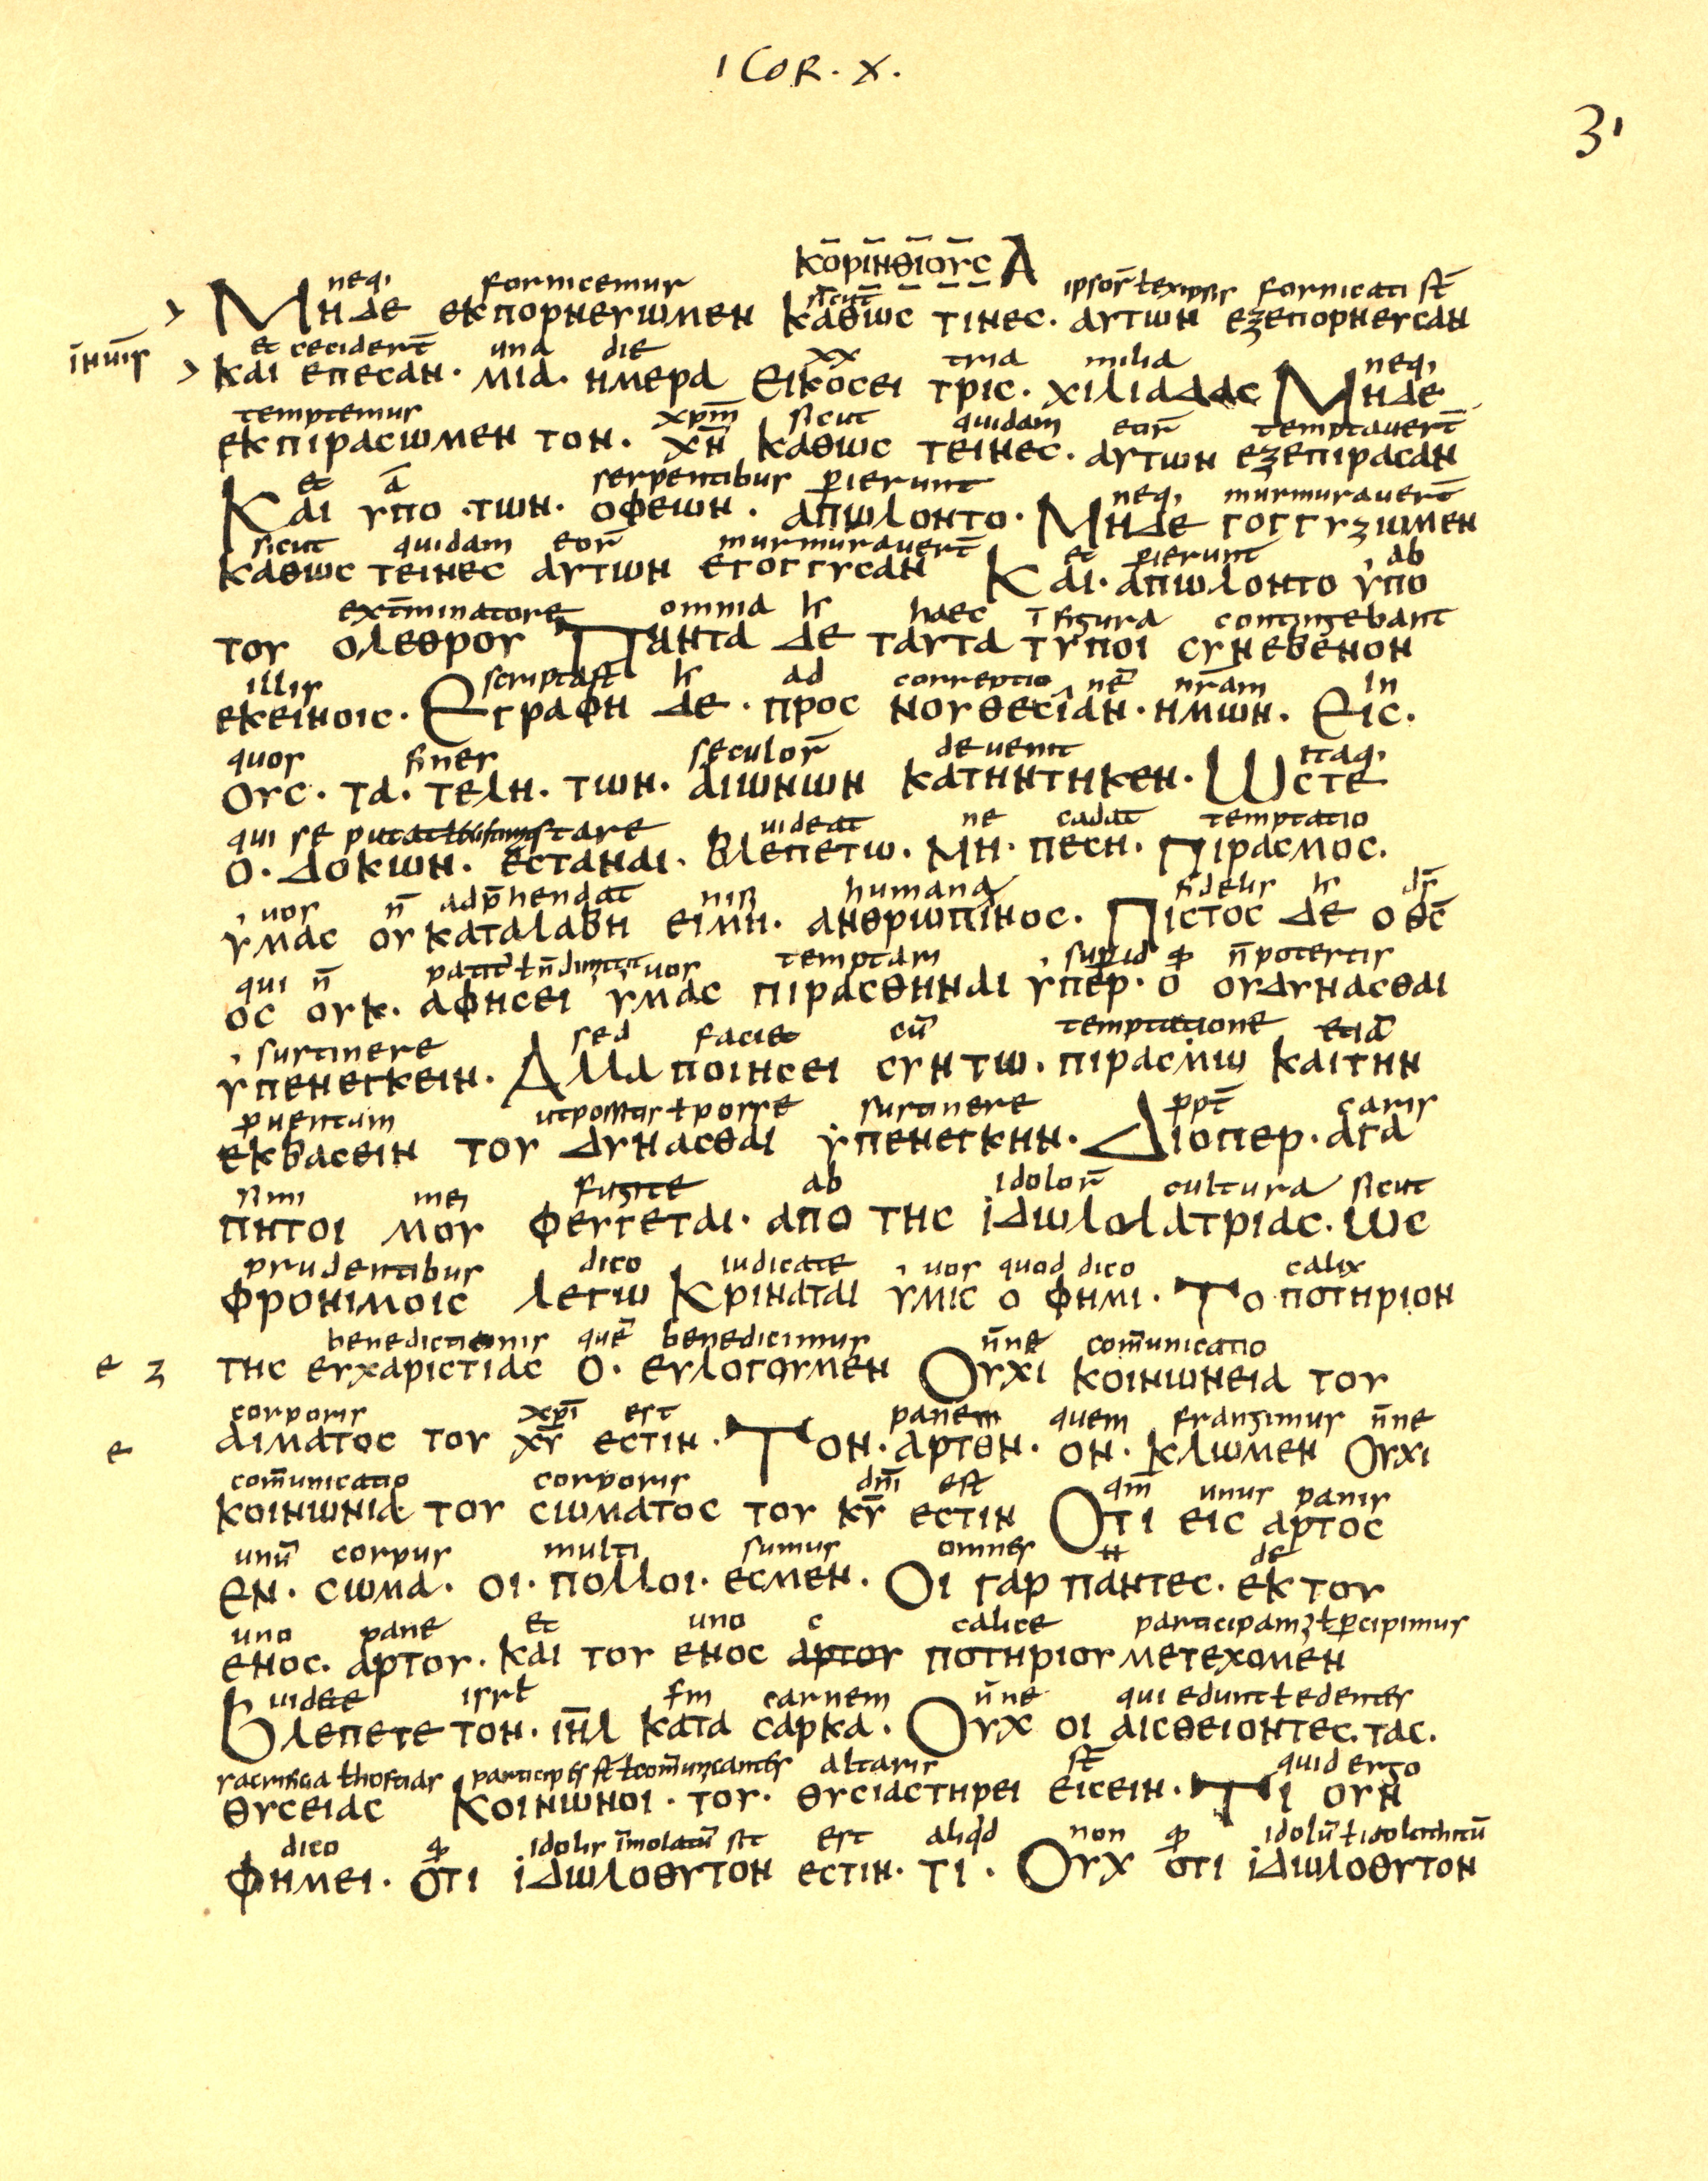 1 COR. X.
31
ΚΟΡΙΝΘΙΟΥC Α
neq; fornicemur sicut ipsoꝝ ł ex ipsis fornicati sт̄
ΜΗΔΕ ΕΚΠΟΡΝΕΥΩΜΕΝ ΚΑΘΩC ΤΙΝΕC· ΑΥΤΩΝ ΕΞΕΠΟΡΝΕΥCΑΝ
et ceciderт̄ una die xx tria milia neq;
ΚΑΙ ΕΠΕCΑΝ· ΜΙΑ· ΗΜΕΡΑ ΕΙΚΟCΕΙ ΤΡΙC· ΧΙΛΙΑΔΑC ΜΗΔΕ
temptemur xp̄m sicut quidam eoꝝ temptauerт̄
ΕΚΠΙΡΑCΩΜΕΝ ΤΟΝ· Χ̄Ν̄ ΚΑΘΩC ΤΕΙΝΕC· ΑΥΤΩΝ ΕΞΕΠΙΡΑCΑΝ
et a serpentibus ꝑierunt neq; murmurauerт̄
ΚΑΙ ΥΠΟ ·ΤΩΝ· ΟΦΕΩΝ· ΑΠΩΛΟΝΤΟ· ΜΗΔΕ ΓΟΓΓΥΖΩΜΕΝ
sicut quidam eoꝝ murmurauerт̄ et ꝑierunt ab
ΚΑΘΩC ΤΕΙΝΕC ΑΥΤΩΝ ΕΓΟΓΓΥCΑΝ ΚΑΙ· ΑΠΩΛΟΝΤΟ ΥΠΟ
ext̄minatore omnia h haec ī figura contingebant
ΤΟΥ ΟΛΕΘΡΟΥ ΠΑΝΤΑ ΔΕ ΤΑΥΤΑ ΤΥΠΟΙ CΥΝΕΒΕΝΟΝ
illis scripta st h ad correptio nē nr̄am in
ΕΚΕΙΝΟΙC· ΕΓΡΑΦΗ ΔΕ· ΠΡΟC ΝΟΥΘΕCΙΑΝ· ΗΜΩΝ· ΕΙC·
quos fines seculoꝝ deuenit itaq;
ΟΥC· ΤΑ· ΤΕΛΗ· ΤΩΝ· ΑΙΩΝΩΝ ΚΑΤΗΝΤΗΚΕΝ· ΩCΤΕ
qui se putat stare uideat ne cadat temptatio
Ο· ΔΟΚΩΝ· ΕCΤΑΝΑΙ· ΒΛΕΠΕΤΩ· ΜΗ· ΠΕCΗ· ΠΙΡΑCΜΟC·
uos n̄ adp̄hendat nisi humana fidelis h d̄s
ΥΜΑC ΟΥ ΚΑΤΑΛΑΒΗ ΕΙΜΗ· ΑΝΘΡΩΠΙΝΟC· ΠΙCΤΟC ΔΕ Ο Θ̄C̄
qui n̄ uos temptari n̄ potestis
ΟC ΟΥΚ· ΑΦΗCΕΙ ΥΜΑC ΠΙΡΑCΘΗΝΑΙ ΥΠΕΡ· Ο ΟΥΔΥΝΑCΘΑΙ
sustinere sed faciet cū temptatione etiā
ΥΠΕΝΕΓΚΕΙΝ· ΑΛΛΑ ΠΟΙΗCΕΙ CΥΝ ΤΩ· ΠΙΡΑCΜΩ ΚΑΙ ΤΗΝ
ꝓuentum ut possitis ł posse sustinere ꝓpт̄ caris
ΕΚΒΑCΕΙΝ ΤΟΥ ΔΥΝΑCΘΑΙ ΥΠΕΝΕΓΚΗΝ· ΔΙΟΠΕΡ· ΑΓΑ
simi mei fugite ab idoloꝝ cultura sicut
ΠΗΤΟΙ ΜΟΥ ΦΕΥΓΕΤΑΙ· ΑΠΟ ΤΗC ΙΔΩΛΟΛΑΤΡΙΑC· ΩC
prudentibus dico iudicate uos quod dico calix
ΦΡΟΝΙΜΟΙC ΛΕΓΩ ΚΡΙΝΑΤΑΙ ΥΜΙC Ο ΦΗΜΙ· ΤΟ ΠΟΤΗΡΙΟΝ
benedictionis quē benedicimus n̄ne com̄unicatio
ΤΗC ΕΥΧΑΡΙCΤΙΑC Ο· ΕΥΛΟΓΟΥΜΕΝ ΟΥΧΙ ΚΟΙΝΩΝΕΙΑ ΤΟΥ
corporis xp̄i est panem quem frangimus n̄ne
ΑΙΜΑΤΟC ΤΟΥ Χ̄Ῡ ΕCΤΙΝ· ΤΟΝ· ΑΡΤΟΝ· ΟΝ· ΚΛΩΜΕΝ ΟΥΧΙ
com̄unicatio corporis dn̄i est qm̄ unus panis
ΚΟΙΝΩΝΙΑ ΤΟΥ CΩΜΑΤΟC ΤΟΥ Κ̄Ῡ ΕCΤΙΝ ΟΤΙ ΕΙC ΑΡΤΟC
unū corpus multi sumus omnes de
ΕΝ· CΩΜΑ· ΟΙ· ΠΟΛΛΟΙ· ΕCΜΕΝ· ΟΙ ΓΑΡ ΠΑΝΤΕC· ΕΚ ΤΟΥ
uno pane et uno c calice participam; ł ꝑcipimus
ΕΝΟC· ΑΡΤΟΥ· ΚΑΙ ΤΟΥ ΕΝΟC ΑΡΤΟΥ ΠΟΤΗΡΙΟΥ ΜΕΤΕΧΟΜΕΝ
uidete isrł sm carnem n̄ne qui edunt ł edentes
ΒΛΕΠΕΤΕ ΤΟΝ· Ι̅Η̅Λ ΚΑΤΑ CΑΡΚΑ· ΟΥΧ ΟΙ ΑΙCΘΕΙΟΝΤΕC· ΤΑC·
sacrificia ł hostias participes st ł com̄unicantes altaris st̄ quid ergo
ΘΥCΕΙΑC ΚΟΙΝΩΝΟΙ· ΤΟΥ· ΘΥCΙΑCΤΗΡΕΙ ΕΙCΕΙΝ· ΤΙ ΟΥΝ
dico ꝙ idolis īmolatū sit est aliq̇d non ꝙ
ΦΗΜΕΙ· ΟΤΙ ΙΔΩΛΟΘΥΤΟΝ ΕCΤΙΝ· ΤΙ· ΟΥΧ ΟΤΙ ΙΔΩΛΟΘΥΤΟΝ